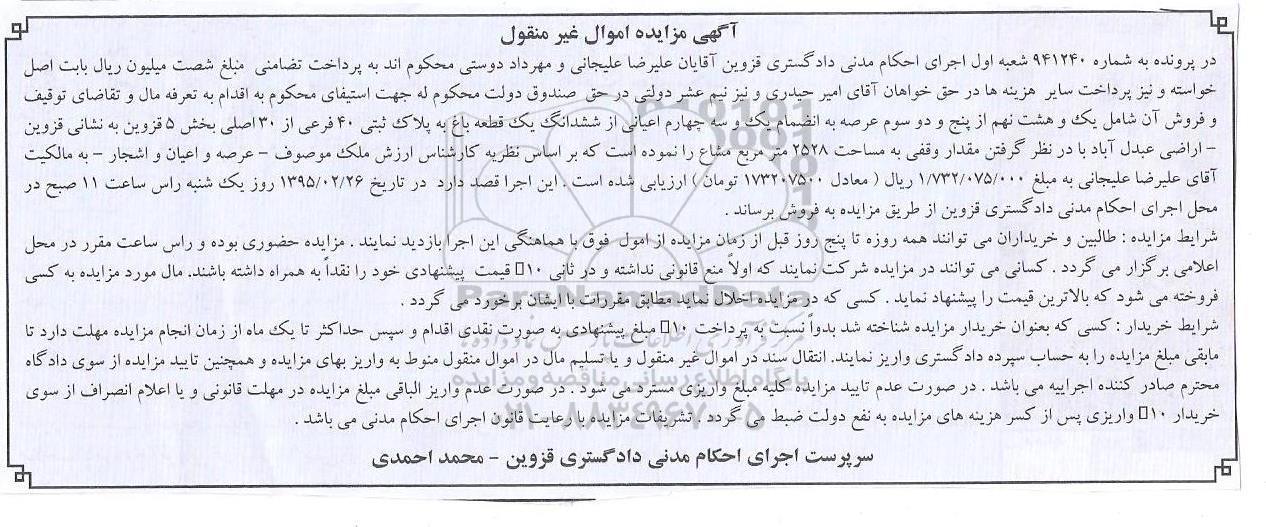 آگهی مزایده اموال غیر منقول
در پرونده به شماره ۹۴۱۲۴۰ شعبه اول اجرای احکام مدنی دادگستری قزوین آقایان علیرضا علیجانی و مهرداد دوستی محکوم اند به پرداخت تضامنی مبلغ شصت میلیون ریال بابت اصل
خواسته و نیز پرداخت سایر هزینه ها در حق خواهان آقای امیر حیدری و نیز نیم عشر دولتی در حق صندوق دولت محکوم له جهت استیفای محکوم به اقدام به تعرفه مال و تقاضای توقیف
و فروش آن شامل یک و هشت نهم از پنج و دو سوم عرصه به انضمام یک و سه چهارم اعیانی از ششدانگ یک قطعه باغ به پلاک ثبتی ۴۰ فرعی از ۳۰ اصلی بخش ۵ قزوین به نشانی قزوین
– اراضی عبدل آباد با در نظر گرفتن مقدار وقفی به مساحت ۲۵۲۸ متر مربع مشاع را نموده است که بر اساس نظریه کارشناس ارزش ملک موصوف – عرصه و اعیان و اشجار – به مالکیت
آقای علیرضا علیجانی به مبلغ ۱/۷۳۲/۰۷۵/۰۰۰ ریال ( معادل ۱۷۳۲۰۷۵۰۰ تومان ) ارزیابی شده است . این اجرا قصد دارد در تاریخ ۱۳۹۵/۰۲/۲۶ روز یک شنبه راس ساعت ۱۱ صبح در
محل اجرای احکام مدنی دادگستری قزوین از طریق مزایده به فروش برساند .
شرایط مزایده : طالبین و خریداران می توانند همه روزه تا پنج روز قبل از زمان مزایده از امول فوق با هماهنگی این اجرا بازدید نمایند . مزایده حضوری بوده و راس ساعت مقرر در محل
اعلامی برگزار می گردد . کسانی می توانند در مزایده شرکت نمایند که اولاً منع قانونی نداشته و در ثانی ۱۰ قیمت پیشنهادی خود را نقداً به همراه داشته باشند. مال مورد مزایده به کسی
فروخته می شود که بالاترین قیمت را پیشنهاد نماید . کسی که در مزایده اخلال نماید مطابق مقررات با ایشان برخورد می گردد .
شرایط خریدار : کسی که بعنوان خریدار مزایده شناخته شد بدواً نسبت به پرداخت ۱۰ مبلغ پیشنهادی به صورت نقدی اقدام و سپس حداکثر تا یک ماه از زمان انجام مزایده مهلت دارد تا
مابقی مبلغ مزایده را به حساب سپرده دادگستری واریز نمایند. انتقال سند در اموال غیر منقول و یا تسلیم مال در اموال منقول منوط به واریز بهای مزایده و همچنین تایید مزایده از سوی دادگاه
محترم صادر کننده اجراییه می باشد . در صورت عدم تایید مزایده کلیه مبلغ واریزی مسترد می شود . در صورت عدم واریز الباقی مبلغ مزایده در مهلت قانونی و یا اعلام انصراف از سوی
خریدار ۱۰ واریزی پس از کسر هزینه های مزایده به نفع دولت ضبط می گردد . تشریفات مزایده با رعایت قانون اجرای احکام مدنی می باشد .
سرپرست اجرای احکام مدنی دادگستری قزوین – محمد احمدی
ParsNamadData
پایگاه اطلاع رسانی مناقصه و مزایده
۰۲۱-۸۸۳۴۹۶۷۰-۵